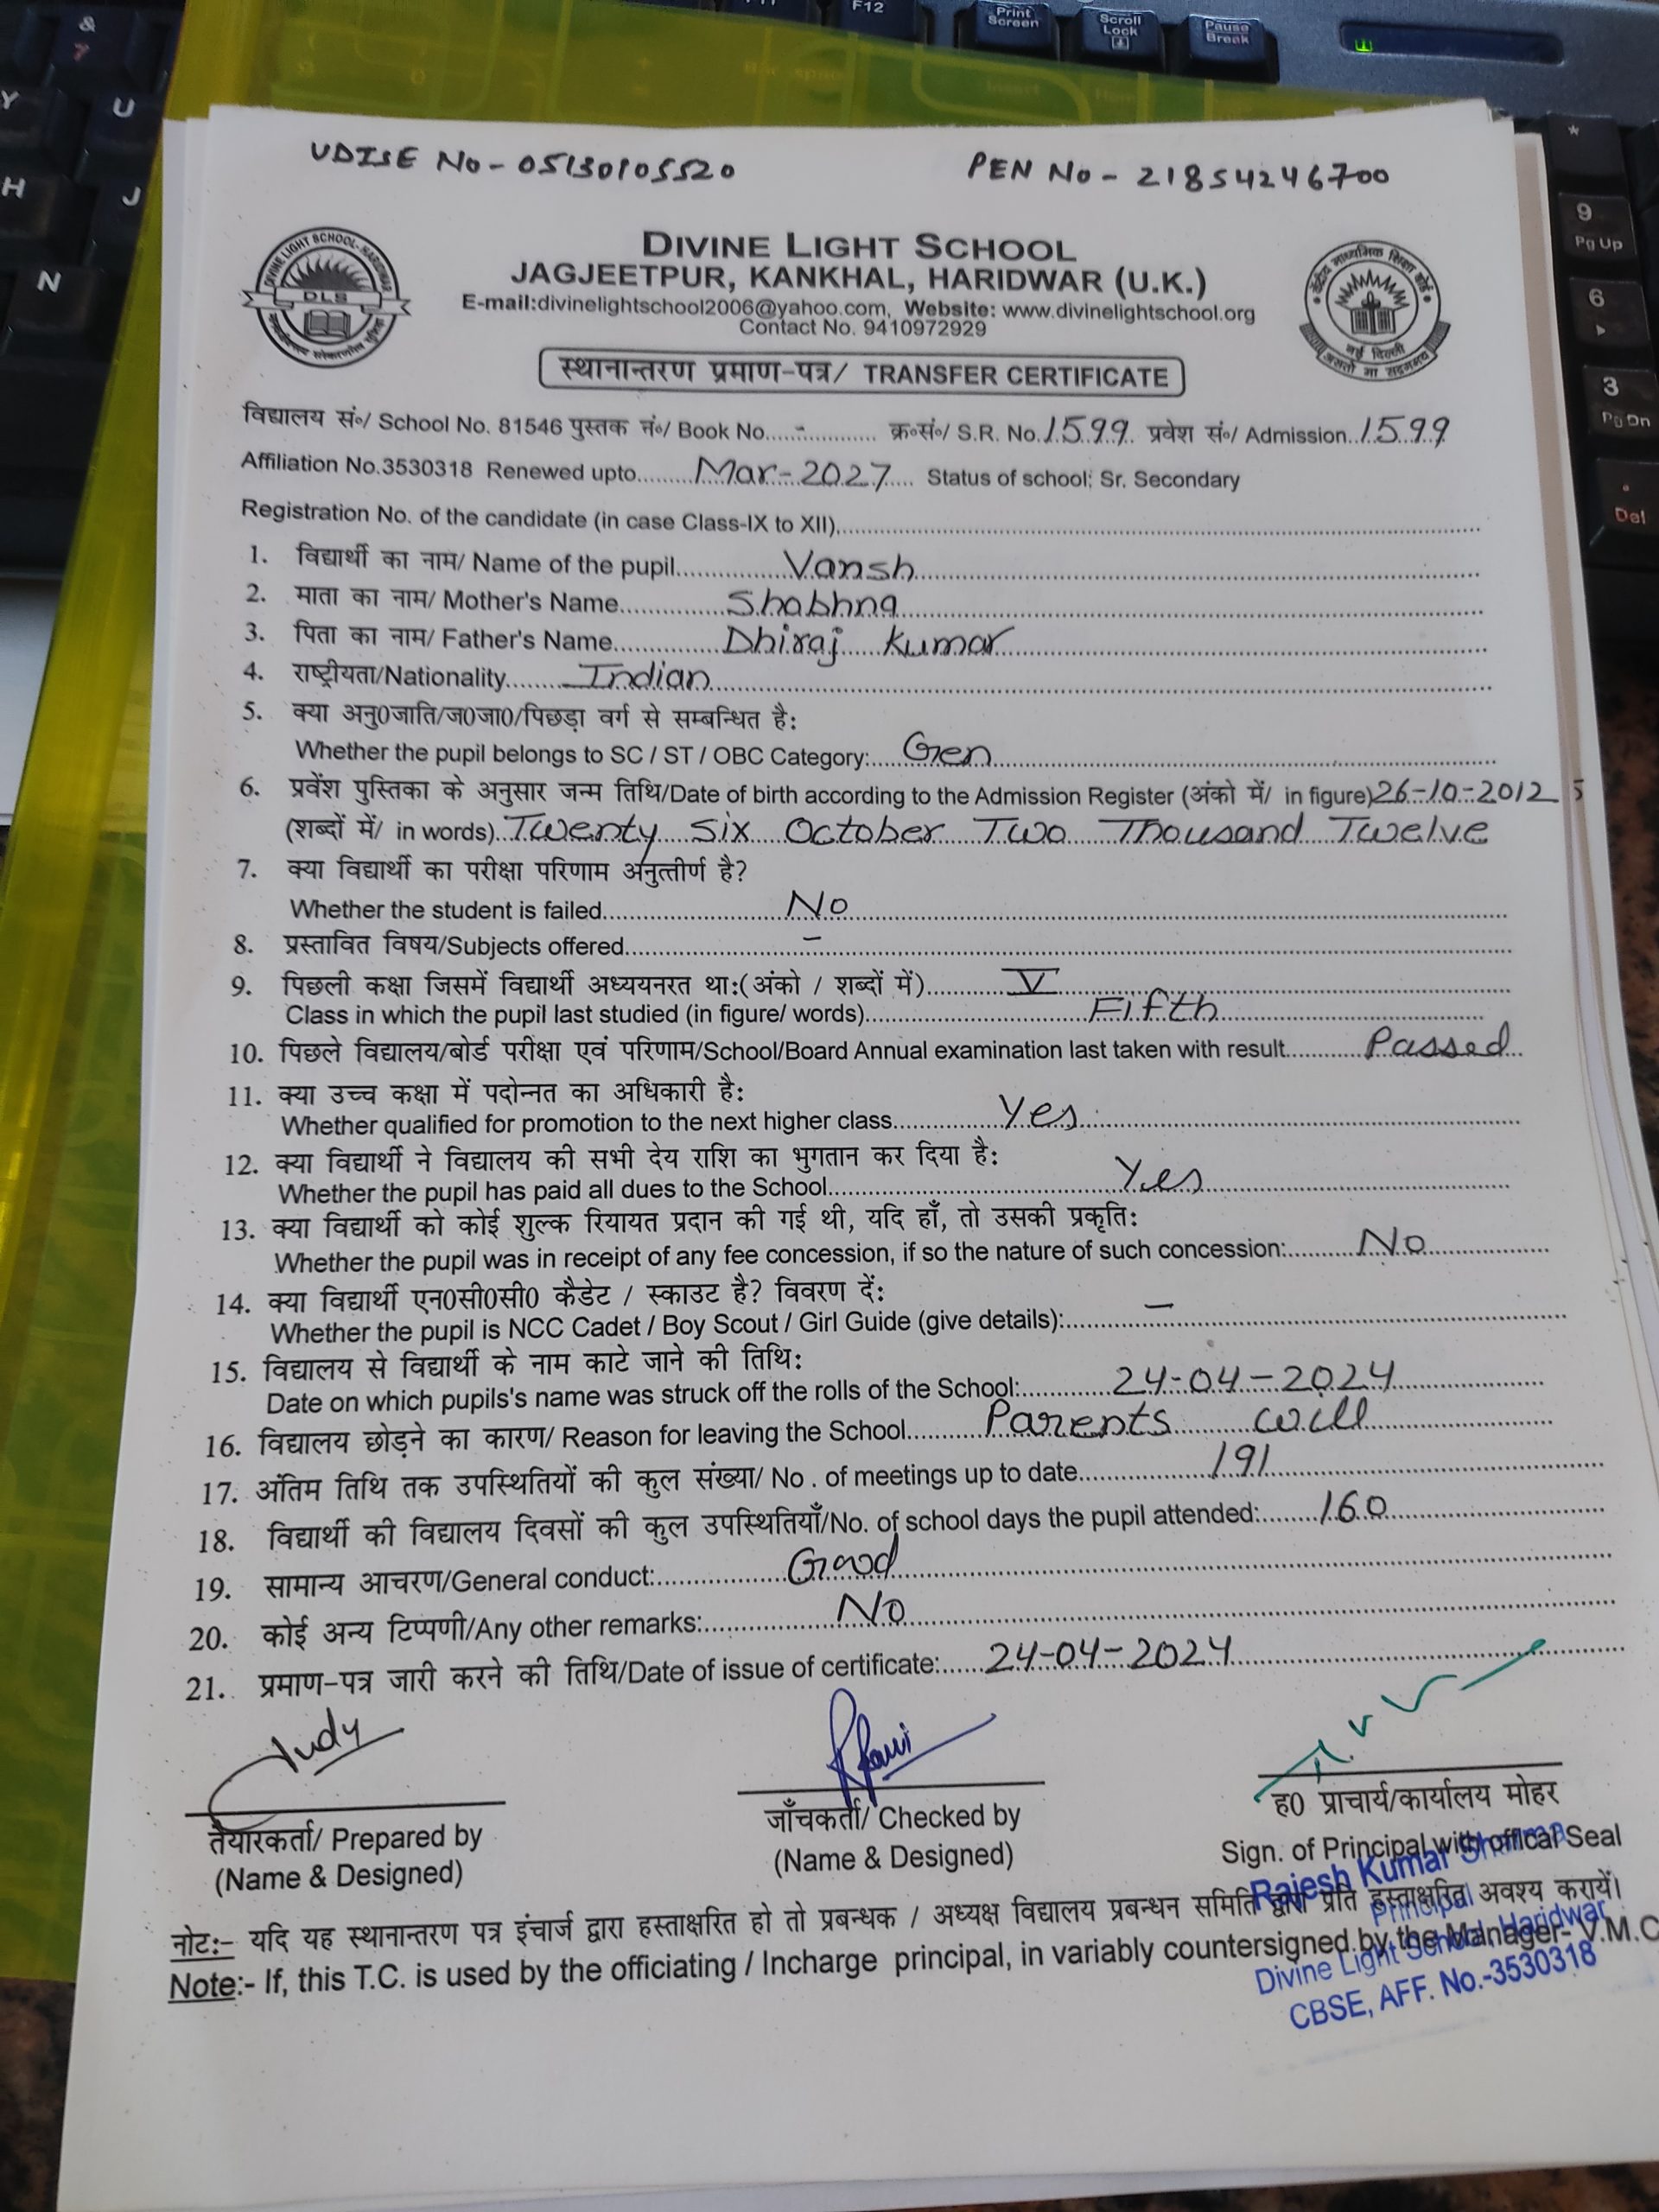 UDISE No - 05130105520
PEN No - 218542246700
DIVINE LIGHT SCHOOL
JAGJEETPUR, KANKHAL, HARIDWAR (U.K.)
E-mail:divinelightschool2006@yahoo.com, Website: www.divinelightschool.org
Contact No. 9410972929
DIVINE LIGHT SCHOOL-HARIDWAR
DLS
केंद्रीय माध्यमिक शिक्षा बोर्ड
नई दिल्ली
असतो मा सद्गमय
स्थानान्तरण प्रमाण-पत्र/ TRANSFER CERTIFICATE
विद्यालय सं०/ School No. 81546 पुस्तक नं०/ Book No.....-.............. क्र०सं०/ S.R. No.1599. प्रवेश सं०/ Admission..1599
Affiliation No.3530318 Renewed upto.........Mar-2027.... Status of school: Sr. Secondary
Registration No. of the candidate (in case Class-IX to XII)..........
1. विद्यार्थी का नाम/ Name of the pupil...............Vansh..........
2. माता का नाम/ Mother's Name..............Shabhna..........
3. पिता का नाम/ Father's Name..............Dhiraj Kumar..........
4. राष्ट्रीयता/Nationality........Indian..........
5. क्या अनु0जाति/ज0जा0/पिछड़ा वर्ग से सम्बन्धित है:
Whether the pupil belongs to SC / ST / OBC Category:....Gen..........
6. प्रवेंश पुस्तिका के अनुसार जन्म तिथि/Date of birth according to the Admission Register (अंको में/ in figure)26-10-2012
(शब्दों में/ in words).Twenty Six October Two Thousand Twelve
7. क्या विद्यार्थी का परीक्षा परिणाम अनुत्तीर्ण है?
Whether the student is failed..........No..........
8. प्रस्तावित विषय/Subjects offered..........-..........
9. पिछली कक्षा जिसमें विद्यार्थी अध्ययनरत था:(अंको / शब्दों में)..........V..........
Class in which the pupil last studied (in figure/ words)..........Fifth..........
10. पिछले विद्यालय/बोर्ड परीक्षा एवं परिणाम/School/Board Annual examination last taken with result..........Passed..
11. क्या उच्च कक्षा में पदोन्नत का अधिकारी है:
Whether qualified for promotion to the next higher class..........Yes..........
12. क्या विद्यार्थी ने विद्यालय की सभी देय राशि का भुगतान कर दिया है:
Whether the pupil has paid all dues to the School..........Yes..........
13. क्या विद्यार्थी को कोई शुल्क रियायत प्रदान की गई थी, यदि हाँ, तो उसकी प्रकृति:
Whether the pupil was in receipt of any fee concession, if so the nature of such concession:..........No..........
14. क्या विद्यार्थी एन0सी0सी0 कैडेट / स्काउट है? विवरण दें:
Whether the pupil is NCC Cadet / Boy Scout / Girl Guide (give details):..........-..........
15. विद्यालय से विद्यार्थी के नाम काटे जाने की तिथि:
Date on which pupils's name was struck off the rolls of the School:..........24-04-2024..........
16. विद्यालय छोड़ने का कारण/ Reason for leaving the School..........Parents will..........
17. अंतिम तिथि तक उपस्थितियों की कुल संख्या/ No . of meetings up to date..........191..........
18. विद्यार्थी की विद्यालय दिवसों की कुल उपस्थितियाँ/No. of school days the pupil attended:........160..........
19. सामान्य आचरण/General conduct:..........Good..........
20. कोई अन्य टिप्पणी/Any other remarks:..........No..........
21. प्रमाण-पत्र जारी करने की तिथि/Date of issue of certificate:......24-04-2024..........
Judy
तैयारकर्ता/ Prepared by
(Name & Designed)
जाँचकर्ता/ Checked by
(Name & Designed)
ह0 प्राचार्य/कार्यालय मोहर
Sign. of Principal with offical Seal
Rajesh Kumar Sharma
Principal
Divine Light School, Haridwar
CBSE, AFF. No.-3530318
नोट:- यदि यह स्थानान्तरण पत्र इंचार्ज द्वारा हस्ताक्षरित हो तो प्रबन्धक / अध्यक्ष विद्यालय प्रबन्धन समिति द्वारा प्रति हस्ताक्षरित अवश्य करायें।
Note:- If, this T.C. is used by the officiating / Incharge principal, in variably countersigned by the Manager- V.M.C
&
7
Y
U
H
J
N
F12
Print Screen
Scroll Lock
Pause Break
*
9
Pg Up
6
3
Pg Dn
.
Del